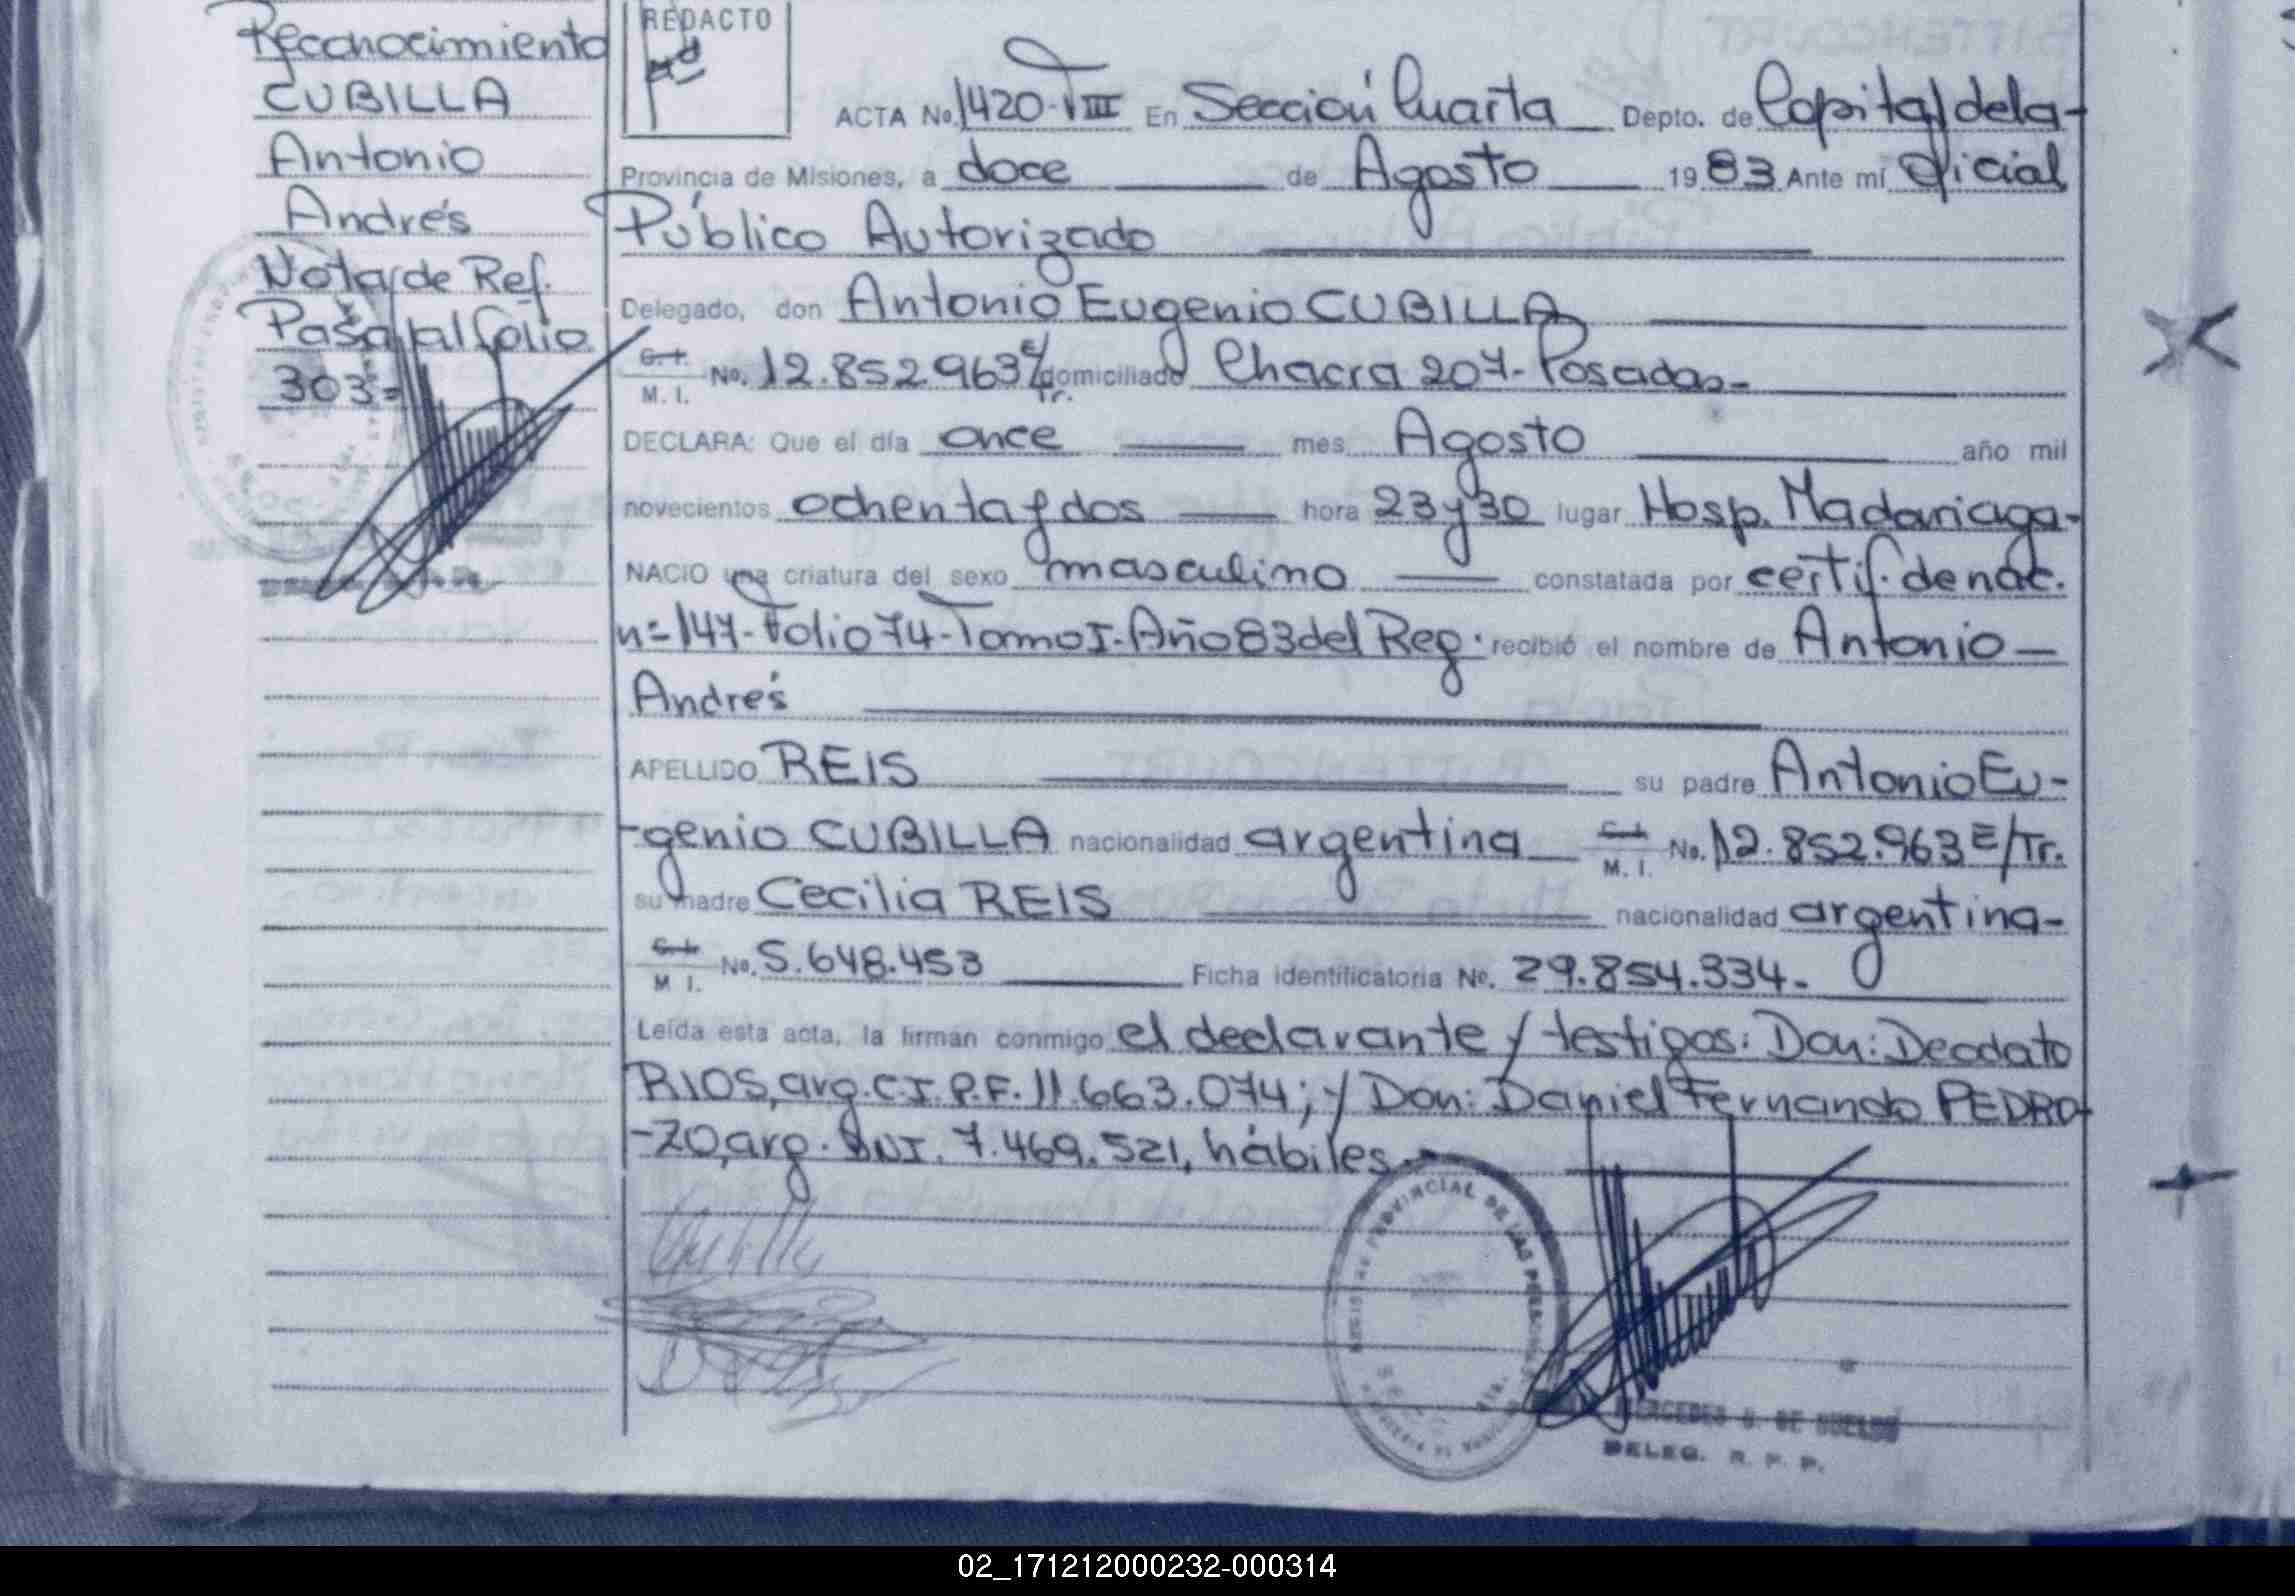 Reconocimiento
CUBILLA
Antonio
Andrés
Nota de Ref.
Pasa al folio
303=
REDACTO
ACTA No. 1420-VIII En Sección Cuarta Depto. de Capital de la-
Provincia de Misiones, a doce de Agosto 1983 Ante mí Oficial
Público Autorizado
Delegado, don Antonio Eugenio CUBILLA
C.I. M.I. No. 12.852.963 E/Tr. domiciliado Chacra 207- Posadas-
DECLARA: Que el día once mes Agosto año mil
novecientos ochenta y dos hora 23 y 30 lugar Hosp. Madariaga-
NACIO una criatura del sexo masculino constatada por certif. de nac.
n= 147- Folio 74- Tomo I- Año 83 del Reg. recibió el nombre de Antonio
Andrés
APELLIDO REIS su padre Antonio Eu-
-genio CUBILLA nacionalidad argentina C.I. M.I. No. 12.852.963 E/Tr.
su madre Cecilia REIS nacionalidad argentina-
C.I. M I. No. 5.648.453 Ficha identificatoria No. 29.854.334.-
Leída esta acta, la firman conmigo el declarante y testigos: Don: Deodato
RIOS, arg. C.I. P.F. 11.663.074; y Don: Daniel Fernando PEDRO-
-ZO, arg. DNI. 7.469.521, hábiles.-
PROVINCIAL DE LAS
MERCEDES DE
DELEG. R. P. P.
02_171212000232-000314